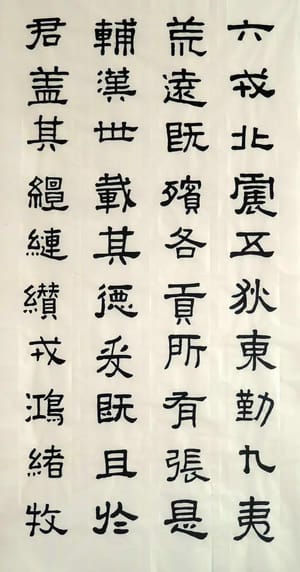 六戎北震五狄東勤九夷
荒遠既殯各貢所有張是
輔漢世載其德爰既且於
君盖其繵縺纘戎鴻緒牧